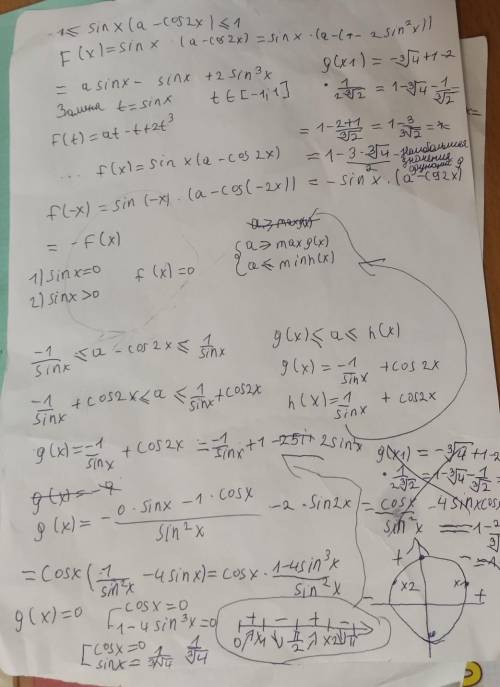 -1 ≤ sinx(a - cos2x) ≤ 1
F(x) = sinx · (a - cos2x) = sinx · (a - (1 - 2sin²x))
= a sinx - sinx + 2sin³x
Замна t = sinx t ∈ [-1;1]
F(t) = at - t + 2t³
... f(x) = sinx(a - cos2x)
f(-x) = sin(-x) · (a - cos(-2x)) = -sinx · (a - cos2x)
= -F(x)
g(x1) = -∛4 + 1 - 2
· 1/(2∛2) = 1 - ∛4 - 1/∛2 =
= 1 - (2+1)/∛2 = 1 - 3/∛2 =
= 1 - (3·∛4)/2 - наибольшее значение функции g
a ≥ max g(x)
{ a ≥ max g(x)
a ≤ min h(x)
1) sinx = 0 f(x) = 0
2) sinx > 0
-1/sinx ≤ a - cos2x ≤ 1/sinx
-1/sinx + cos2x ≤ a ≤ 1/sinx + cos2x
g(x) ≤ a ≤ h(x)
g(x) = -1/sinx + cos2x
h(x) = 1/sinx + cos2x
g(x) = -1/sinx + cos2x = -1/sinx + 1 - 2sin²x
g(x) = - (0 · sinx - 1 · cosx)/sin²x - 2 · sin2x = cosx/sin²x - 4sinxcosx
g(x1) = -∛4 + 1 - 2
· 1/(2∛2) = 1 - ∛4 - 1/∛2 =
= cosx(1/sin²x - 4sinx) = cosx · (1 - 4sin³x)/sin²x
g(x) = 0 [ cosx = 0
1 - 4sin³x = 0
[ cosx = 0
sinx = 1/∛4 1/∛4
+ - + -
0 x1 π/2 x2 π
+ x2 x1
- +